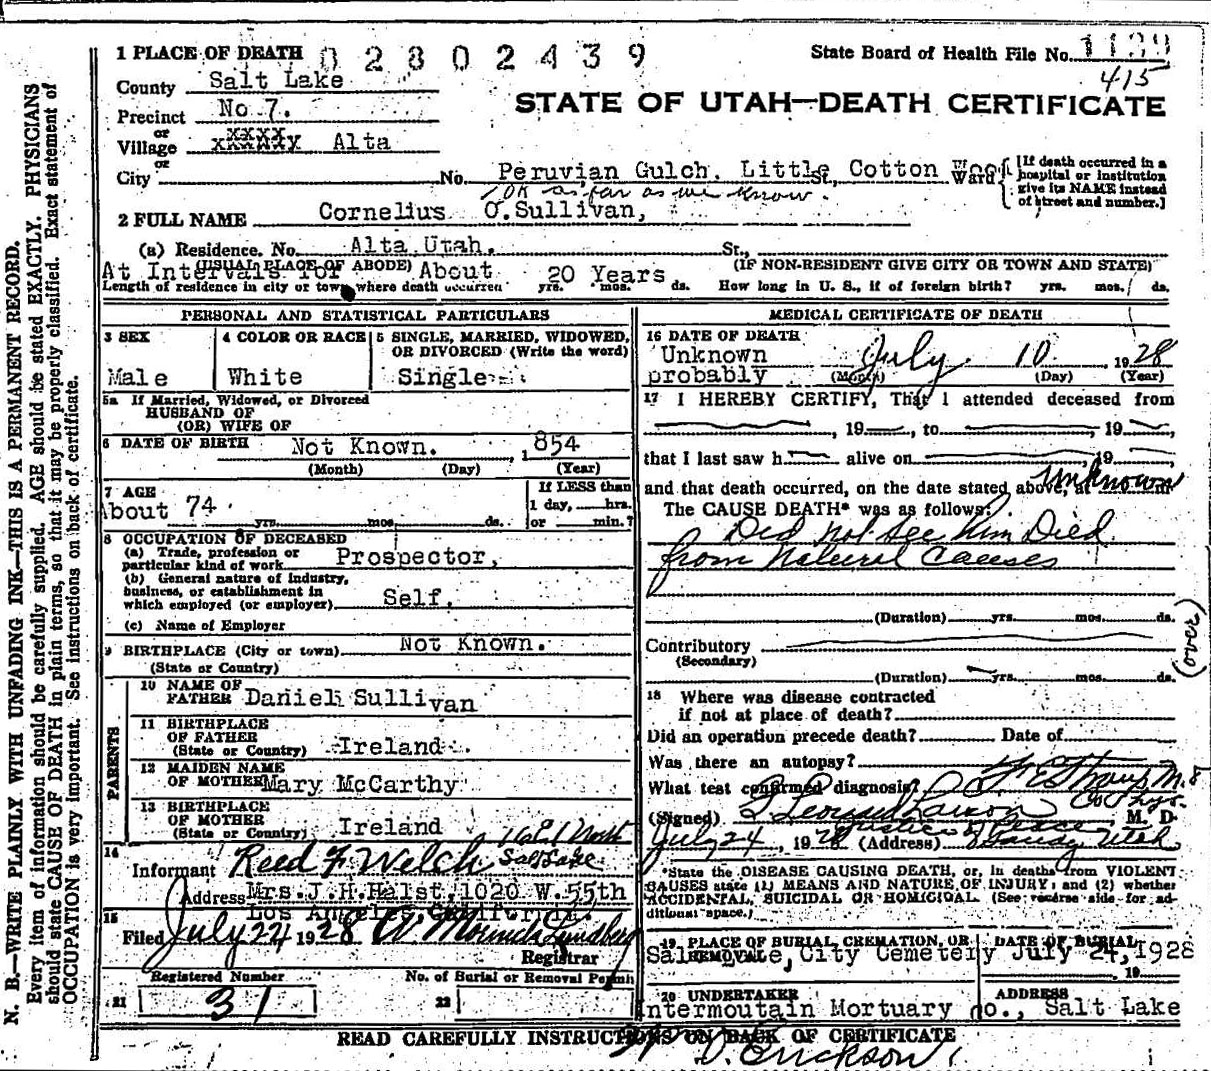 N. B.—WRITE PLAINLY WITH UNFADING INK—THIS IS A PERMANENT RECORD.
Every item of information should be carefully supplied. AGE should be stated EXACTLY. PHYSICIANS
should state CAUSE OF DEATH in plain terms, so that it may be properly classified. Exact statement of
OCCUPATION is very important. See instructions on back of certificate.
1 PLACE OF DEATH 02802439
State Board of Health File No.
415
County Salt Lake
STATE OF UTAH—DEATH CERTIFICATE
Precinct No 7.
or
Village Alta
or
City No. Peruvian Gulch. Little Cotton Wood St., Ward
[If death occurred in a
hospital or institution
give its NAME instead
of street and number.]
OK as far as we know.
2 FULL NAME Cornelius O.Sullivan,
(a) Residence. No. Alta Utah. St.,
(USUAL PLACE OF ABODE) (IF NON-RESIDENT GIVE CITY OR TOWN AND STATE)
At Intervals for About 20 Years.
Length of residence in city or town where death occurred yrs. mos. ds. How long in U. S., if of foreign birth? yrs. mos. ds.
PERSONAL AND STATISTICAL PARTICULARS
3 SEX
Male
4 COLOR OR RACE
White
5 SINGLE, MARRIED, WIDOWED,
OR DIVORCED (Write the word)
Single
5a If Married, Widowed, or Divorced
HUSBAND OF
(OR) WIFE OF
6 DATE OF BIRTH Not Known. , 1854
(Month) (Day) (Year)
7 AGE
About 74.
yrs. mos. ds.
If LESS than
1 day, hrs.
or min.?
8 OCCUPATION OF DECEASED
(a) Trade, profession or
particular kind of work Prospector,
(b) General nature of industry,
business, or establishment in
which employed (or employer) Self.
(c) Name of Employer
9 BIRTHPLACE (City or town) Not Known.
(State or Country)
PARENTS
10 NAME OF
FATHER Daniel Sullivan
11 BIRTHPLACE
OF FATHER
(State or Country) Ireland.
12 MAIDEN NAME
OF MOTHER Mary McCarthy
13 BIRTHPLACE
OF MOTHER
(State or Country) Ireland
14
Informant Reed F Welch
Salt Lake
Address Mrs.J.H.Halst,1020 W.55th
Los Angeles,California.
15
Filed July 24 1928
Registrar
Registered Number
21 31
No. of Burial or Removal Permit
22
MEDICAL CERTIFICATE OF DEATH
16 DATE OF DEATH
Unknown
probably July 10, 1928
(Month) (Day) (Year)
17 I HEREBY CERTIFY, That I attended deceased from
, 19 , to , 19 ,
that I last saw h alive on , 19 ,
and that death occurred, on the date stated above, at unknown m.
The CAUSE DEATH* was as follows:
Did not see him Died
from Natural Causes
(Duration) yrs. mos. ds.
Contributory
(Secondary)
(Duration) yrs. mos. ds.
(over)
18 Where was disease contracted
if not at place of death?
Did an operation precede death? Date of
Was there an autopsy?
What test confirmed diagnosis?
(Signed) M. D.
Justice of Peace
July 24, 1928 (Address) Sandy Utah
*State the DISEASE CAUSING DEATH, or, in deaths from VIOLENT
CAUSES state (1) MEANS AND NATURE OF INJURY; and (2) whether
ACCIDENTAL, SUICIDAL OR HOMICIDAL. (See reverse side for ad-
ditional space.)
19 PLACE OF BURIAL, CREMATION, OR
REMOVAL
DATE OF BURIAL
Salt Lake, City Cemetery July 24, 1928
, 19
20 UNDERTAKER ADDRESS
Intermoutain Mortuary Co., Salt Lake
READ CAREFULLY INSTRUCTIONS ON BACK OF CERTIFICATE
D. Erickson